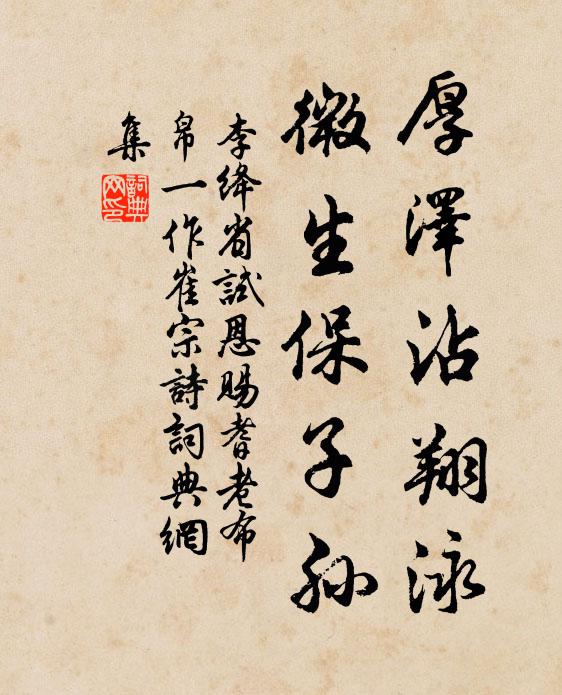 厚澤沾翔泳
微生保子孫
李絳省試恩賜耆老布
帛一作崔宗詩詞典網
集
詞典網印